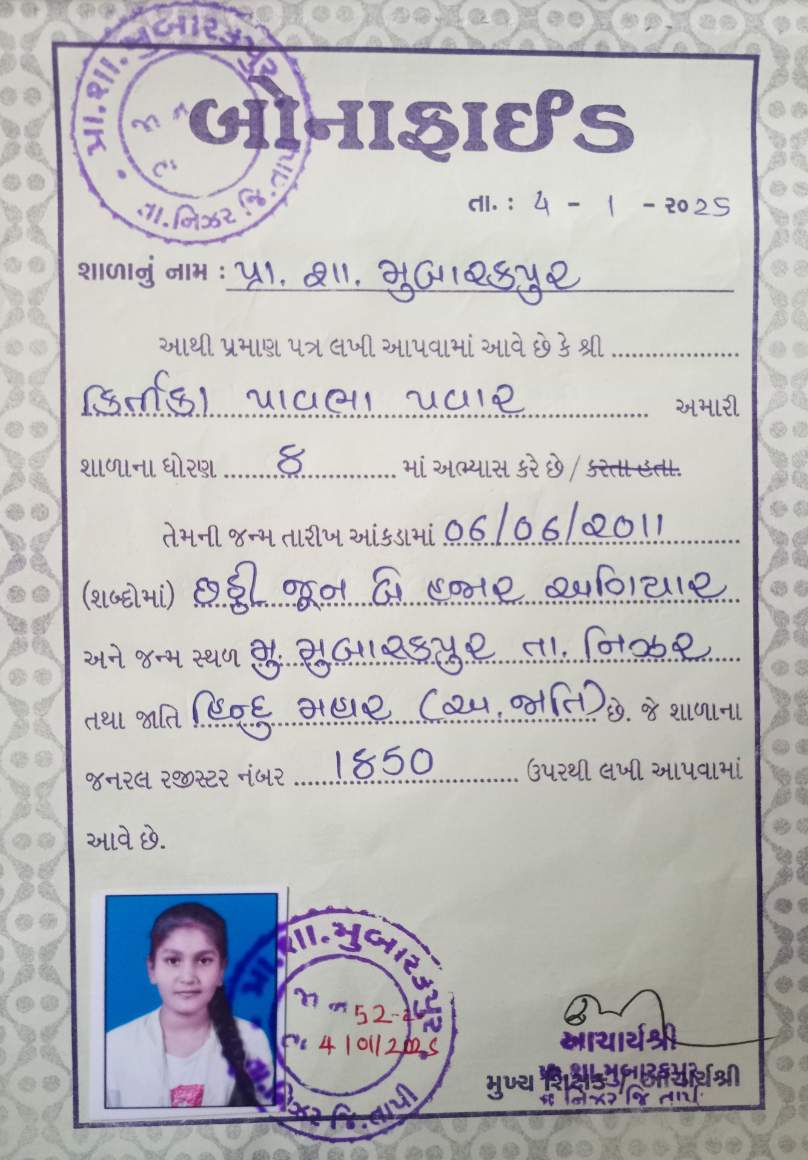 પ્રા.શા.મુબારકપુર
જા ન
તા
તા.નિઝર જિ.તાપી
બોનાફાઈડ
તા. : 4 - 1 - ૨૦25
શાળાનું નામ : પ્રા. શા. મુબારકપુર
આથી પ્રમાણ પત્ર લખી આપવામાં આવે છે કે શ્રી
પવાર અમારી
શાળાના ધોરણ 8 માં અભ્યાસ કરે છે / કરતા હતા.
તેમની જન્મ તારીખ આંકડામાં 06/06/2011
(શબ્દોમાં) છઠ્ઠી જૂન બે હજાર અગિયાર
અને જન્મ સ્થળ મુ. મુબારકપુર તા. નિઝર
તથા જાતિ હિન્દુ મહાર (અ.જાતિ) છે. જે શાળાના
જનરલ રજીસ્ટર નંબર 1850 ઉપરથી લખી આપવામાં
આવે છે.
શા.મુબારકપુર
જા ન 52
તા. 4/01/2025
તા.નિઝર જિ.તાપી
આચાર્યશ્રી
પ્રા.શા.મુબારકપુર
મુખ્ય શિક્ષક / આચાર્યશ્રી
તા નિઝર જિ તાપી